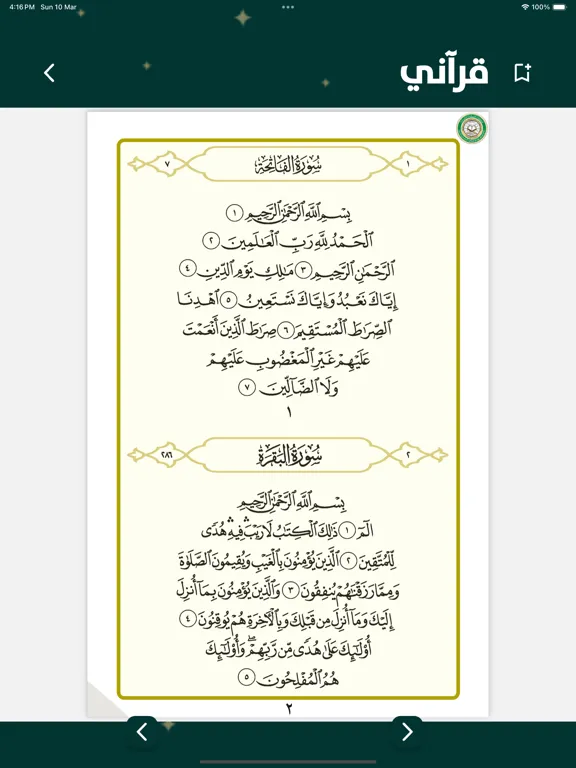 4:16 PM Sun 10 Mar
100%
قرآني
١ سُورَةُ الفَاتِحَةِ ٧
بِسْمِ ٱللَّهِ ٱلرَّحْمَٰنِ ٱلرَّحِيمِ ١
ٱلْحَمْدُ لِلَّهِ رَبِّ ٱلْعَالَمِينَ ٢
ٱلرَّحْمَٰنِ ٱلرَّحِيمِ ٣ مَالِكِ يَوْمِ ٱلدِّينِ ٤
إِيَّاكَ نَعْبُدُ وَإِيَّاكَ نَسْتَعِينُ ٥ ٱهْدِنَا
ٱلصِّرَاطَ ٱلْمُسْتَقِيمَ ٦ صِرَاطَ ٱلَّذِينَ أَنْعَمْتَ
عَلَيْهِمْ غَيْرِ ٱلْمَغْضُوبِ عَلَيْهِمْ
وَلَا ٱلضَّآلِّينَ ٧
١
٢ سُورَةُ البَقَرَةِ ٢٨٦
بِسْمِ ٱللَّهِ ٱلرَّحْمَٰنِ ٱلرَّحِيمِ
الٓمٓ ١ ذَٰلِكَ ٱلْكِتَٰبُ لَا رَيْبَ ۛ فِيهِ ۛ هُدًى
لِّلْمُتَّقِينَ ٢ ٱلَّذِينَ يُؤْمِنُونَ بِٱلْغَيْبِ وَيُقِيمُونَ ٱلصَّلَوٰةَ
وَمِمَّا رَزَقْنَٰهُمْ يُنفِقُونَ ٣ وَٱلَّذِينَ يُؤْمِنُونَ بِمَآ أُنزِلَ
إِلَيْكَ وَمَآ أُنزِلَ مِن قَبْلِكَ وَبِٱلْأَخِرَةِ هُمْ يُوقِنُونَ ٤
أُو۟لَٰٓئِكَ عَلَىٰ هُدًى مِّن رَّبِّهِمْ ۖ وَأُو۟لَٰٓئِكَ
هُمُ ٱلْمُفْلِحُونَ ٥
٢